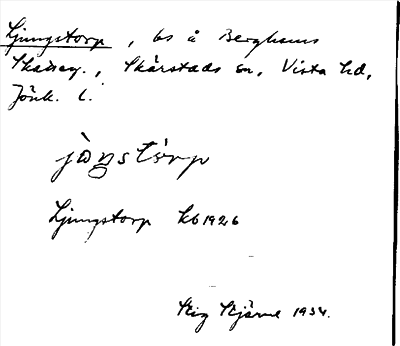 Ljungstorp, bs å Berghems
Skattag., Skärstads sn, Vista hd,
Jönk. l.
jòŋstòrp
Ljungstorp kb 1926
Stig Stjärne 1934.